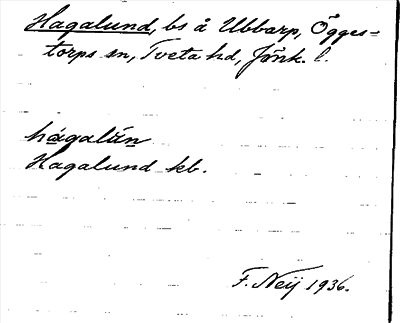 Hagalund, bs å Ubbarp, Ögges-
torps sn, Tveta hd, Jönk. l.
hágalùn
Hagalund kb.
F. Neij 1936.